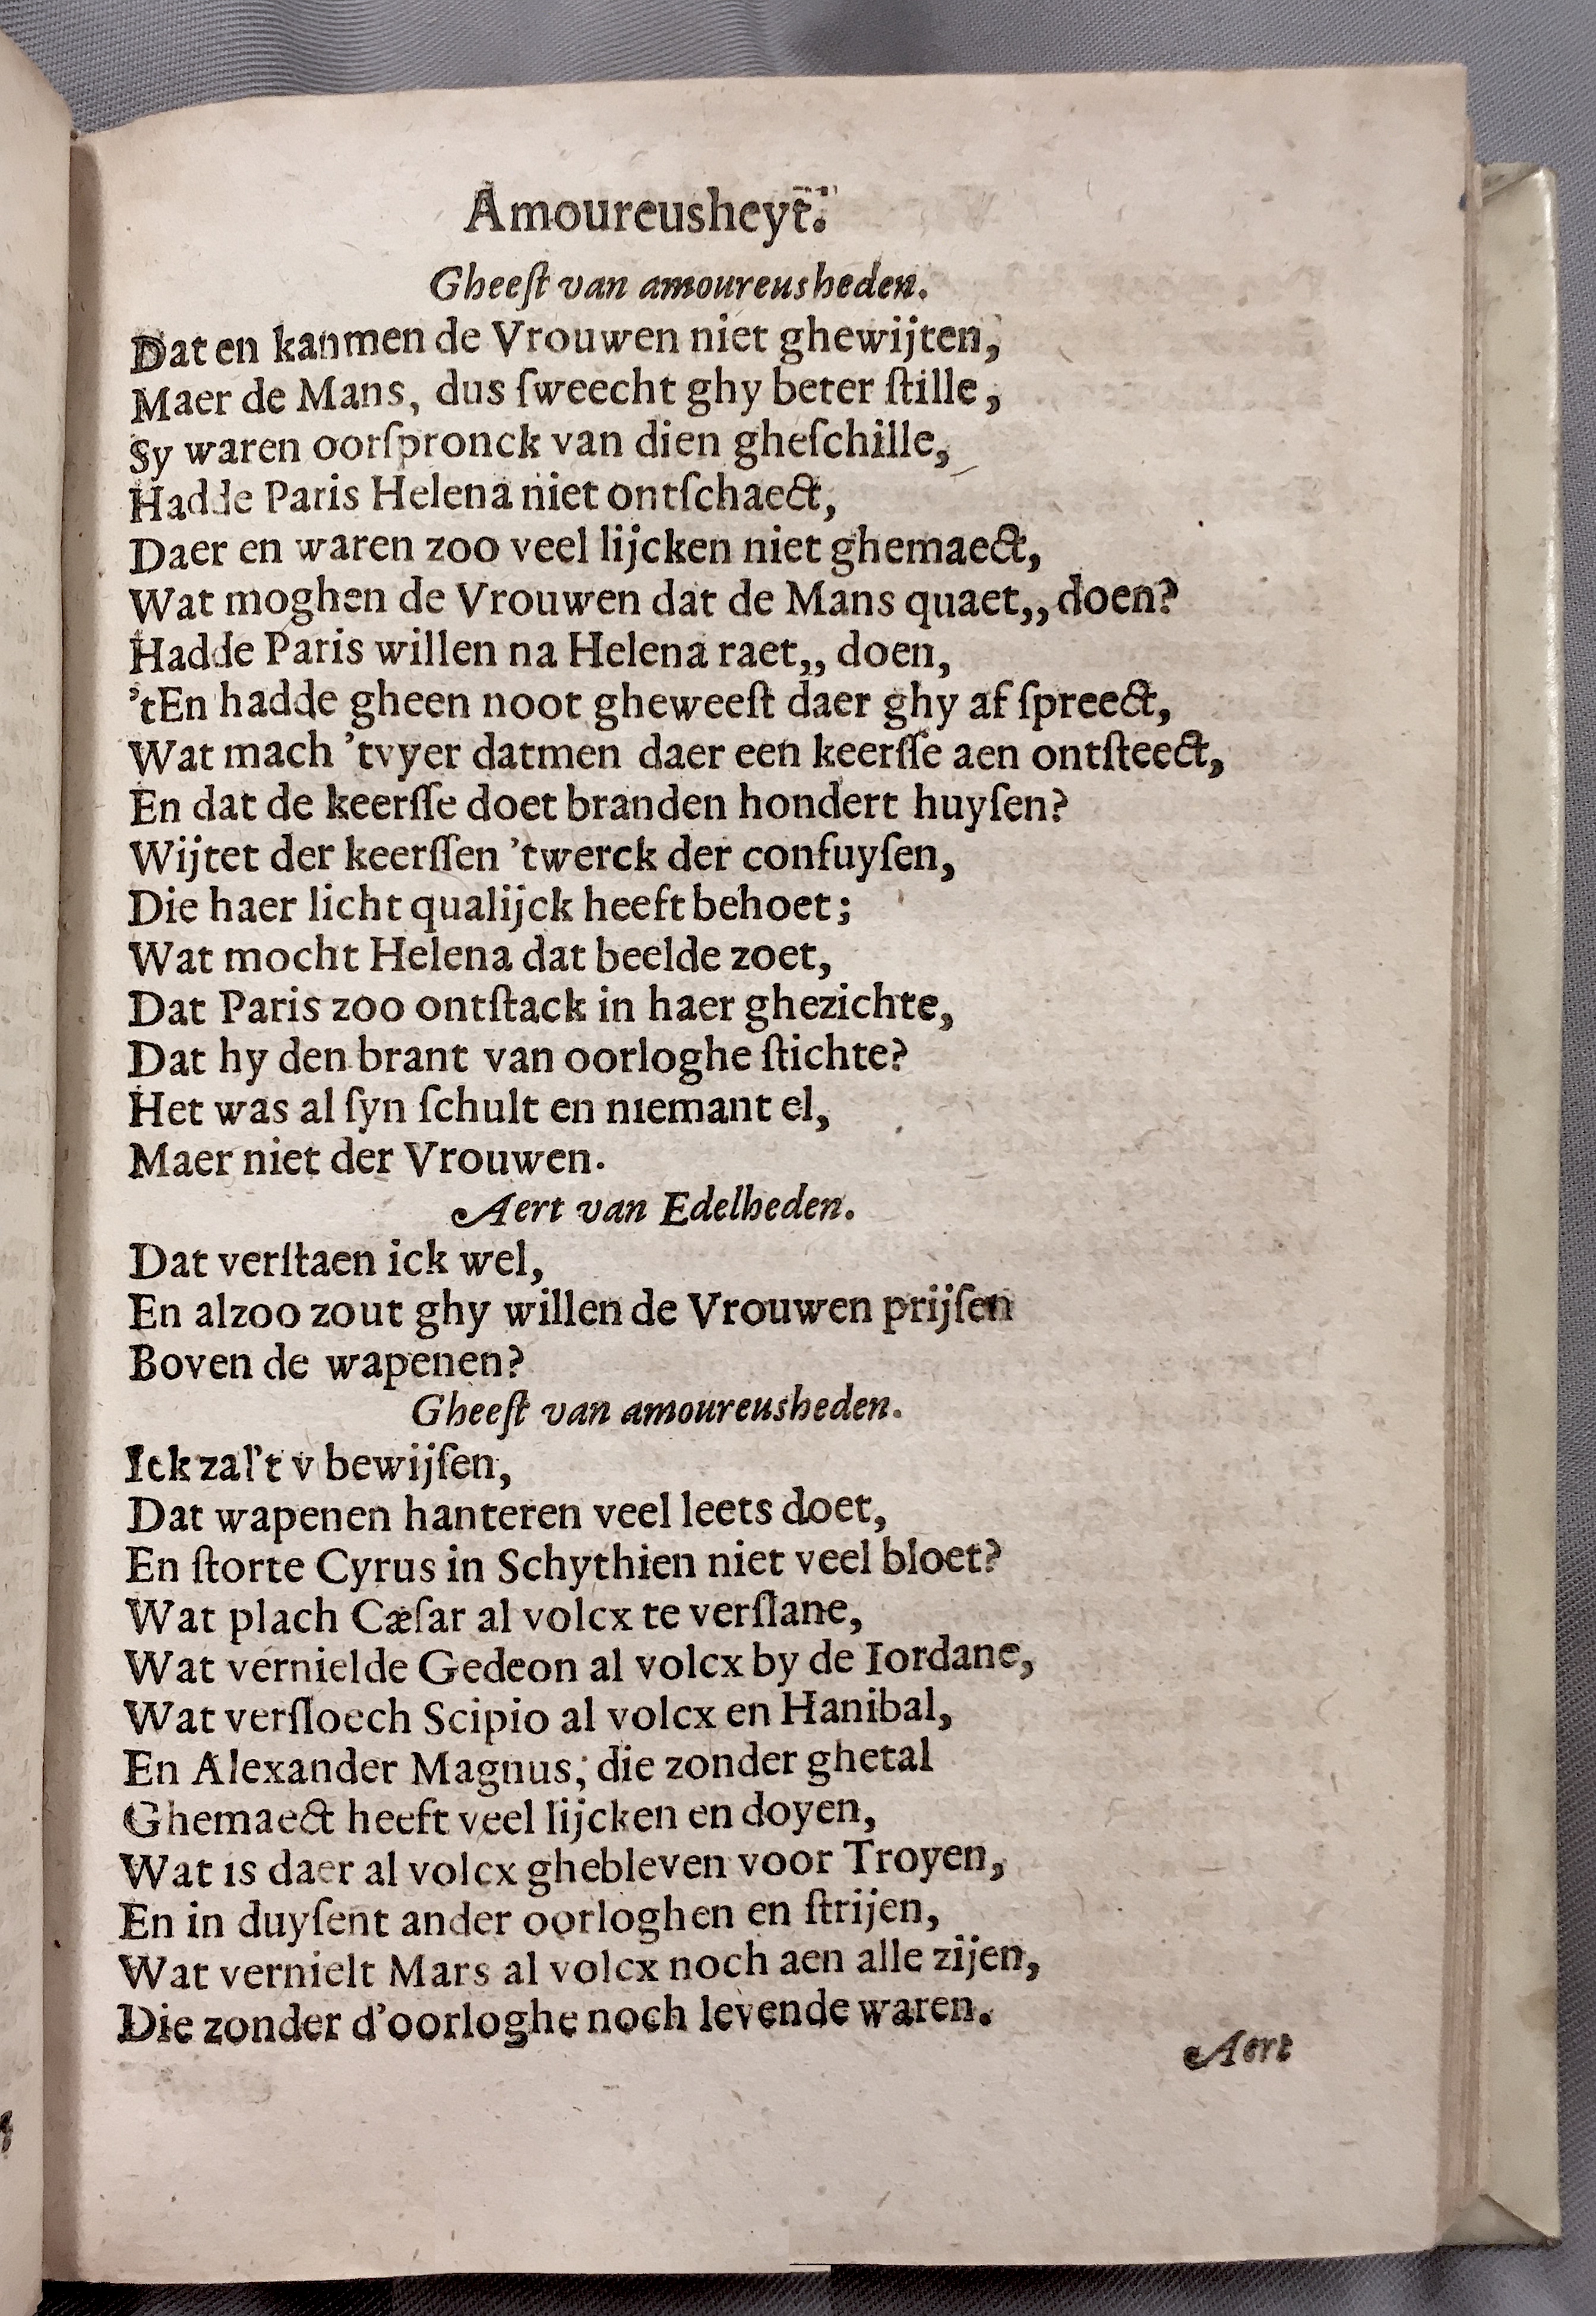 Amoureusheyt.
Gheeſt van amoureusheden.
Dat en kanmen de Vrouwen niet ghewijten,
Maer de Mans, dus ſweecht ghy beter ſtille,
Sy waren oorſpronck van dien gheſchille,
Hadde Paris Helena niet ontſchaect,
Daer en waren zoo veel lijcken niet ghemaect,
Wat moghen de Vrouwen dat de Mans quaet,, doen?
Hadde Paris willen na Helena raet,, doen,
'tEn hadde gheen noot gheweeſt daer ghy af ſpreect,
Wat mach 'tvyer datmen daer een keerſſe aen ontſteect,
En dat de keerſſe doet branden hondert huyſen?
Wijtet der keerſſen 'twerck der confuyſen,
Die haer licht qualijck heeft behoet;
Wat mocht Helena dat beelde zoet,
Dat Paris zoo ontſtack in haer ghezichte,
Dat hy den brant van oorloghe ſtichte?
Het was al ſyn ſchult en niemant el,
Maer niet der Vrouwen.
Aert van Edelheden.
Dat verſtaen ick wel,
En alzoo zout ghy willen de Vrouwen prijſen
Boven de wapenen?
Gheeſt van amoureusheden.
Ick zal't v bewijſen,
Dat wapenen hanteren veel leets doet,
En ſtorte Cyrus in Schythien niet veel bloet?
Wat plach Cæſar al volcx te verſlane,
Wat vernielde Gedeon al volcx by de Iordane,
Wat verſloech Scipio al volcx en Hanibal,
En Alexander Magnus, die zonder ghetal
Ghemaect heeft veel lijcken en doyen,
Wat is daer al volcx ghebleven voor Troyen,
En in duyſent ander oorloghen en ſtrijen,
Wat vernielt Mars al volcx noch aen alle zijen,
Die zonder d'oorloghe noch levende waren.
Aert